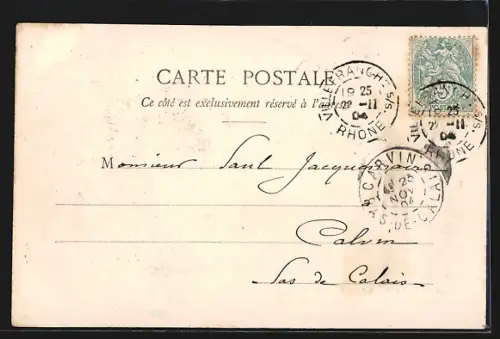 CARTE POSTALE
Ce côté est exclusivement réservé à l'adresse
VILLEFRANCHE S/S
19 25
22 -11
04
RHONE
VILLEFRANCHE S/S
19 25
22 -11
04
RHONE
5
Monsieur Paul
CARVIN
23
NOV
04
PAS-DE-CALAIS
Carvin
Pas de Calais